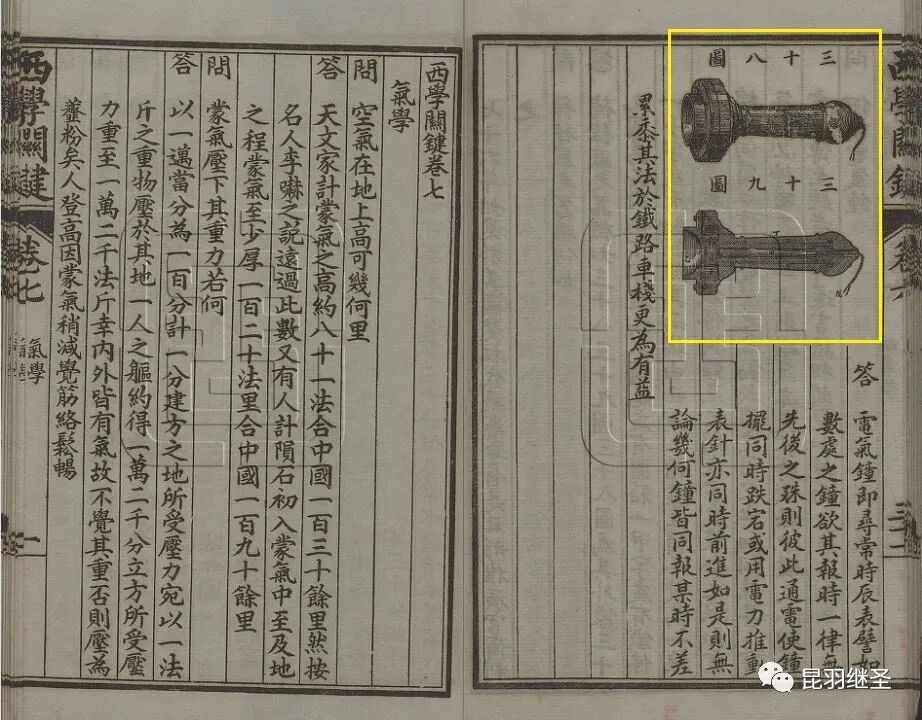 西學關鍵
卷六
三十八圖
三十九圖
答 電氣鐘即尋常時辰表譬如
數處之鐘欲其報時一律無
先後之殊則彼此通電使鐘
擺同時跌宕或用電力推動
表針亦同時前進如是則無
論幾何鐘皆同報某時不差
累黍其法於鐵路車棧更為有益
西學關鍵卷七
氣學
問 空氣在地上高可幾何里
答 天文家計蒙氣之高約八十一法合中國一百三十餘里然按
名人李嚇之說遠過此數又有人計隕石初入蒙氣中至及地
之程蒙氣至少厚一百二十法里合中國一百九十餘里
問 蒙氣壓下其重力若何
答 以一邁當分為一百分計一分建方之地所受壓力宛以一法
斤之重物壓於其地一人之軀約得一萬二千分立方所受壓
力重至一萬二千法斤幸內外皆有氣故不覺其重否則壓為
虀粉矣人登高因蒙氣稍減覺筋絡鬆暢
西學關鍵
卷七
氣學
一
昆羽继圣